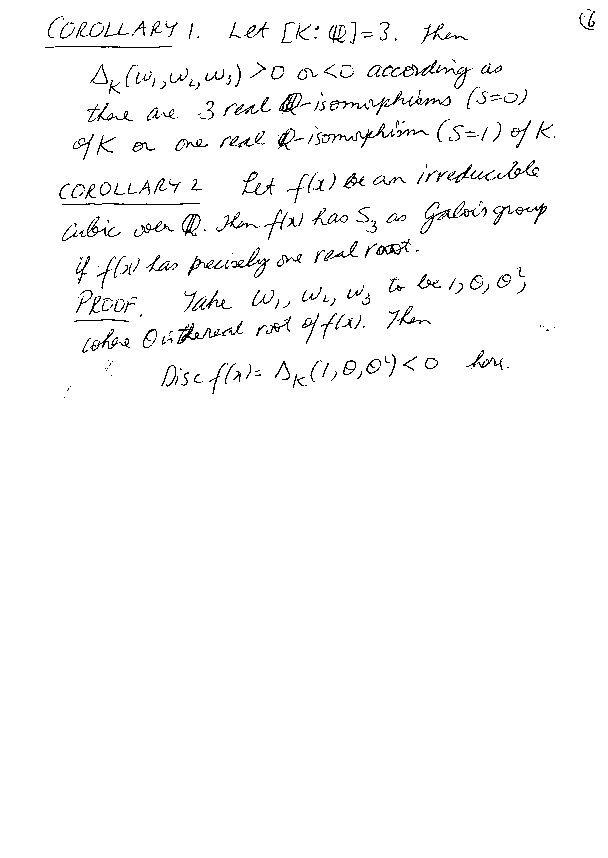 (6
COROLLARY 1. Let [K: ℚ]=3. Then
Δ_K(ω₁,ω₂,ω₃) >0 or <0 according as
there are 3 real ℚ-isomorphisms (s=0)
of K or one real ℚ-isomorphism (s=1) of K.
COROLLARY 2 Let f(x) be an irreducible
cubic over ℚ. Then f(x) has S₃ as Galois group
if f(x) has precisely one real root.
PROOF. Take ω₁, ω₂, ω₃ to be 1, θ, θ²,
where θ is the real root of f(x). Then
Disc f(x) = Δ_K(1, θ, θ²) < 0 here.